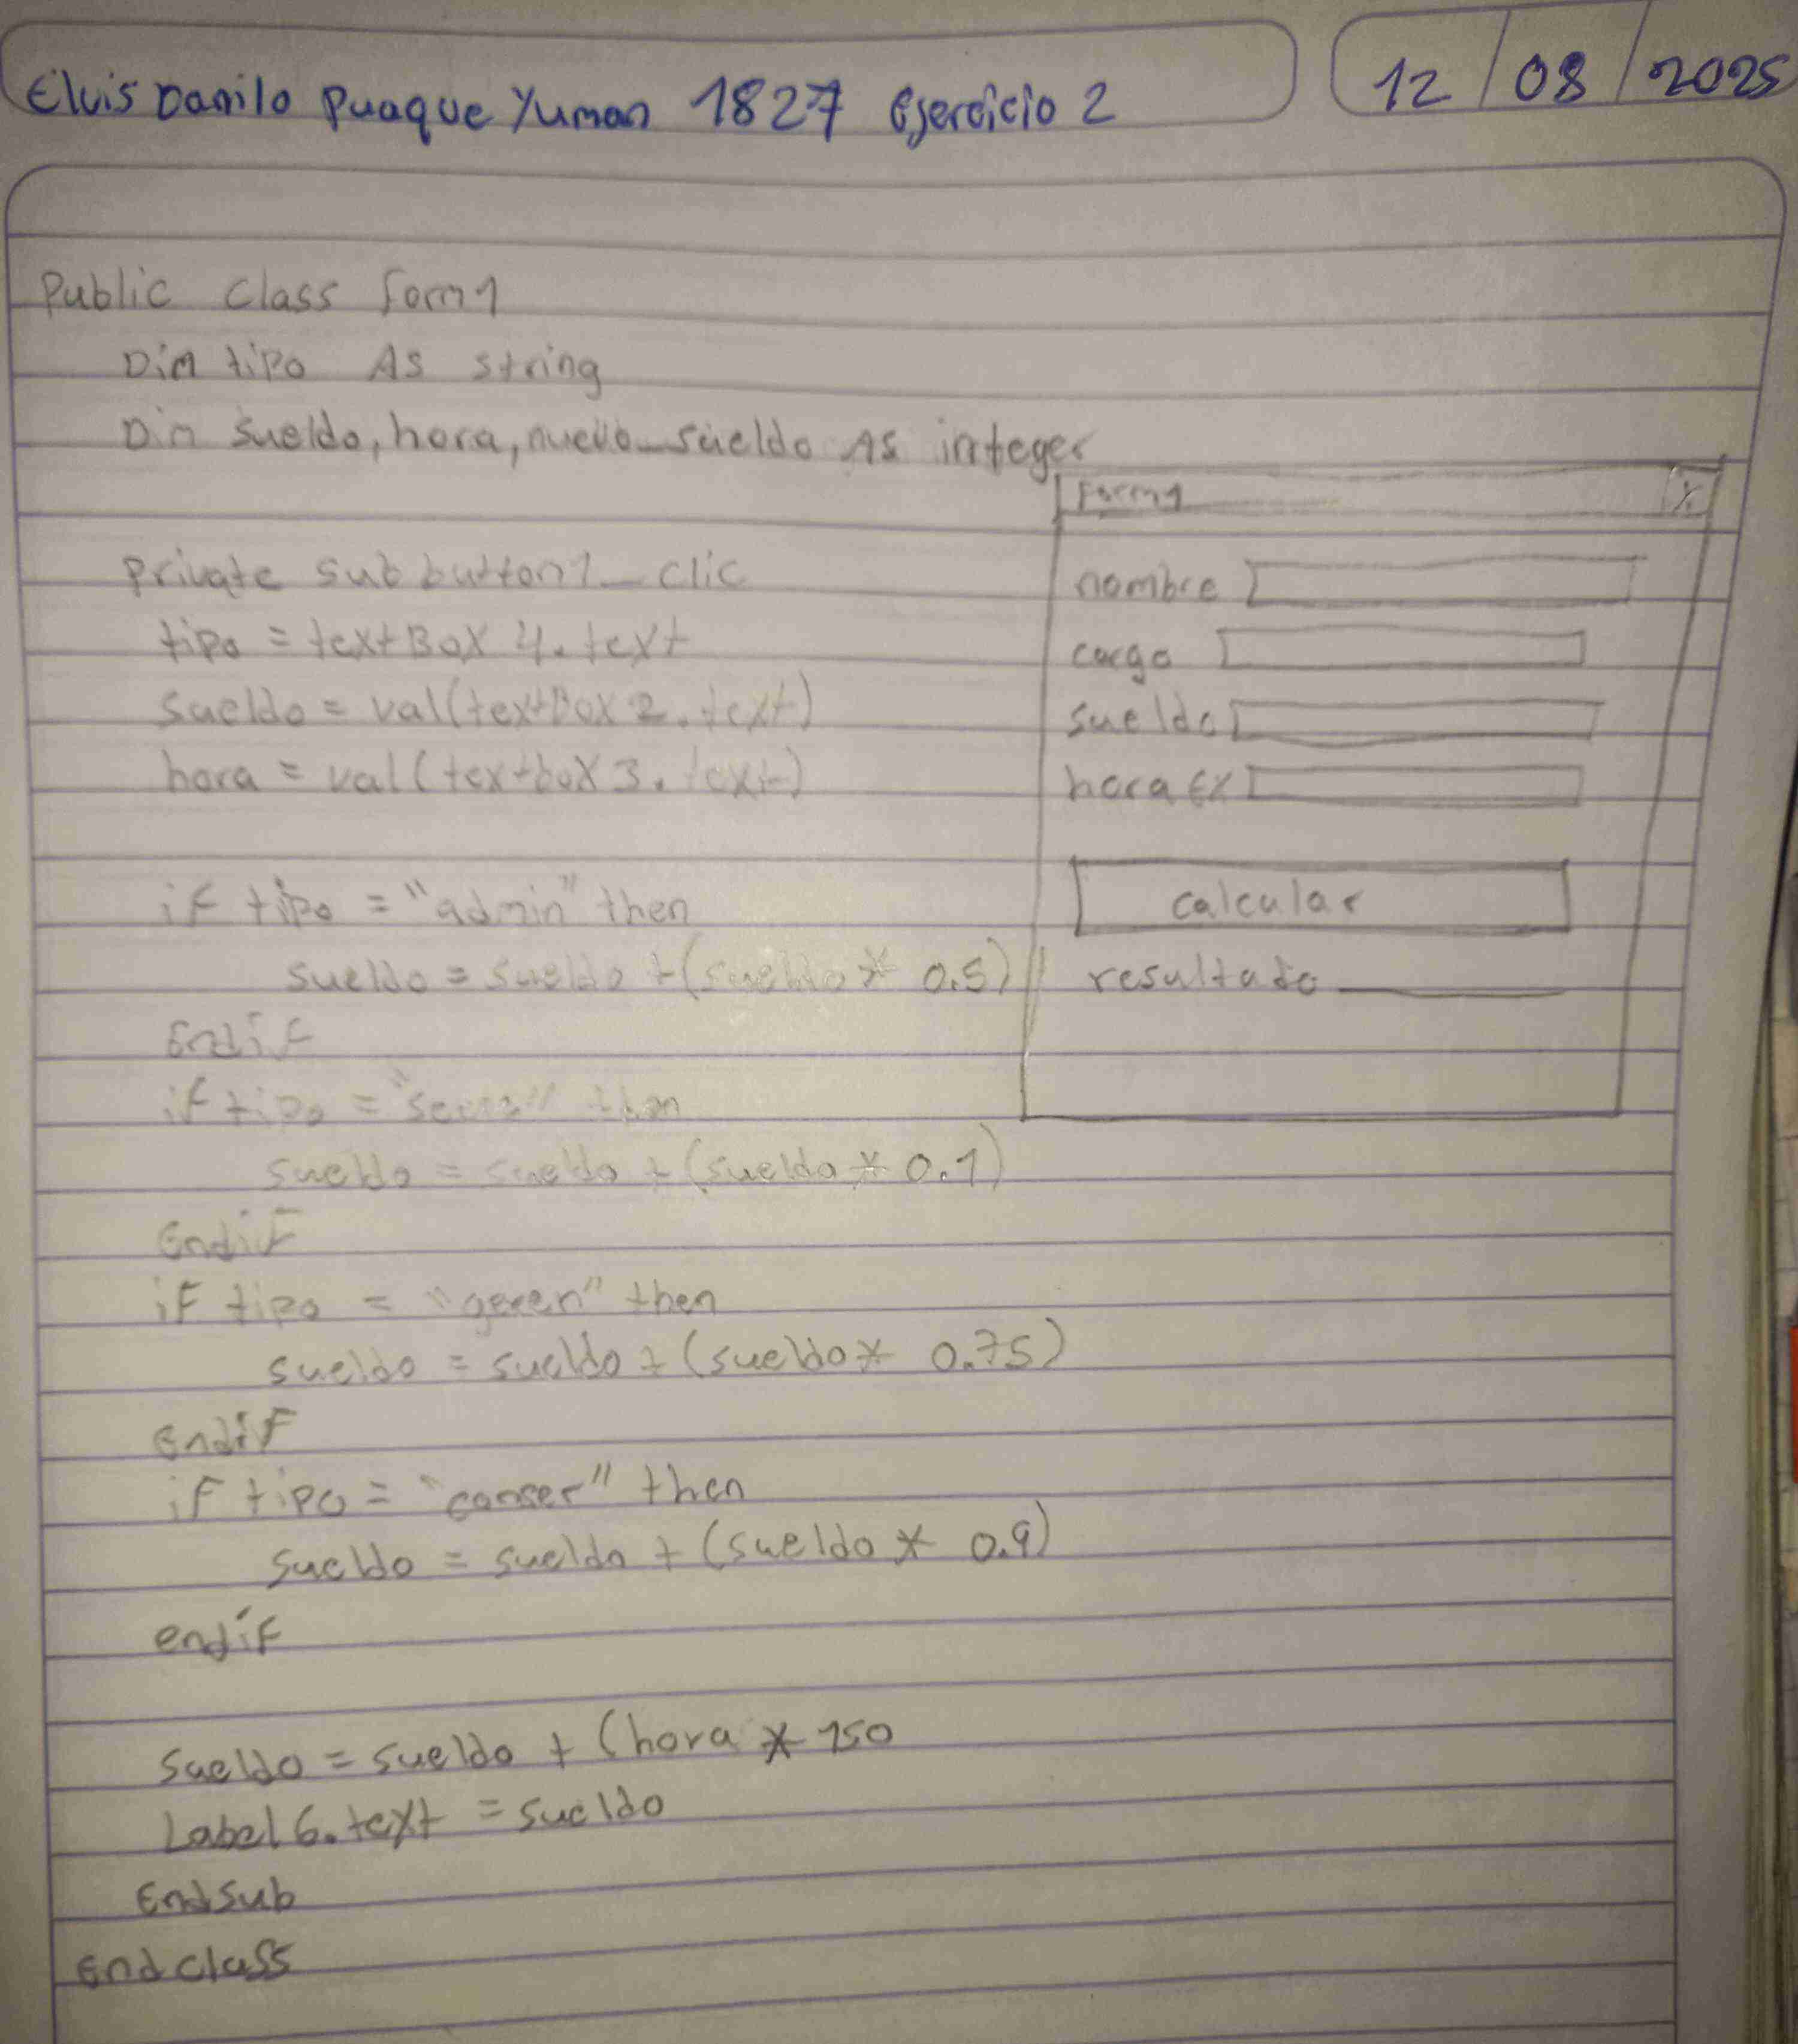 Elvis Danilo Puaque Yuman 1827 Ejercicio 2
12/08/2025
Public Class Form1
Dim tipo As string
Dim sueldo, hora, nuevo_sueldo As integer
private sub button1_clic
tipo = textBox 4. text
sueldo = val(textBox 2. text)
hora = val(textbox 3. text)
if tipo = "admin" then
sueldo = sueldo + (sueldo * 0.5)
Endif
if tipo = " then
sueldo = sueldo + (sueldo * 0.1)
Endif
if tipo = "geren" then
sueldo = sueldo + (sueldo * 0.75)
endif
if tipo = "conser" then
sueldo = sueldo + (sueldo * 0.9)
endif
sueldo = sueldo + (hora * 150
Label 6. text = sueldo
Endsub
End class
Form1 X
nombre
cargo
sueldo
hora Ex
calcular
resultado